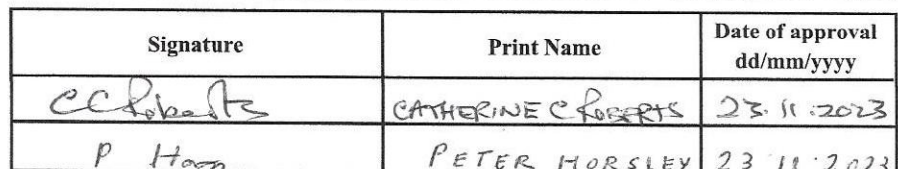 Signature Print Name Date of approval
dd/mm/yyyy
CCRoberts CATHERINE C ROBERTS 23.11.2023
P PETER HORSLEY 23.11.2023